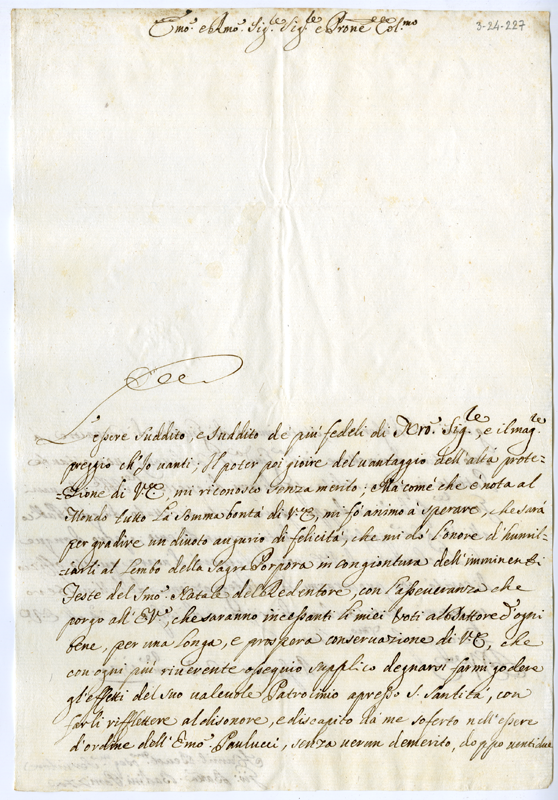 3-24-227
Emo. e Rmo. Sig.re Sig.re e Prone Col.mo
L'essere suddito, e suddito de più fedeli di Nro. Sig.re, e il mag.re
preggio ch'Io vanti; Il poter poi gioire del vantaggio dell'alta prote-
-zione di V.E., mi riconosco senza merito; Mà come che è nota al
Mondo tutto la somma bontà di V.E., mi fò animo à sperare, che sarà
per gradire un divoto augurio di felicità, che mi dò l'onore d'humil-
-iarli al Lembo della Sagra Porpora in congiontura dell'imminenti
Feste del Smo. Natale del Redentore, con l'asseveranza che
porgo all'E.V., che saranno incessanti li miei Voti al Dattore d'ogni
bene, per una longa, e prospera conservazione di V.E., che
con ogni più riverente ossequio supplico degnarsi farmi godere
gl'effetti del suo valevole Patrocinio apresso S. Santità, con
farli rifflettere al disonore, e discapito da me soferto nell'essere
d'ordine dell'Emo. Paulucci, senza verun demerito, doppo venti due